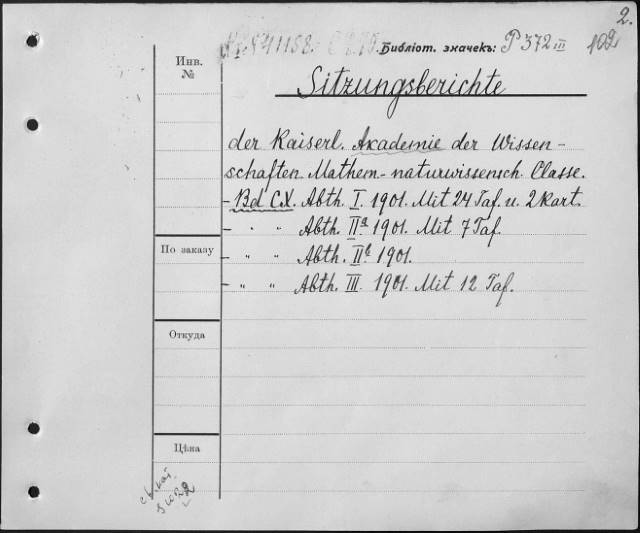 2.
Библіот. значекъ: P 372 III 102
Инв.
№
Sitzungsberichte
der Kaiserl. Akademie der Wissen-
schaften. Mathem-naturwissensch. Classe.
- Bd. CX. Abth. I. 1901. Mit 24 Taf. u. 2 Kart.
- " " Abth. IIa 1901. Mit 7 Taf.
По заказу
- " " Abth. IIb 1901.
- " " Abth. III. 1901. Mit 12 Taf.
Откуда
Цѣна